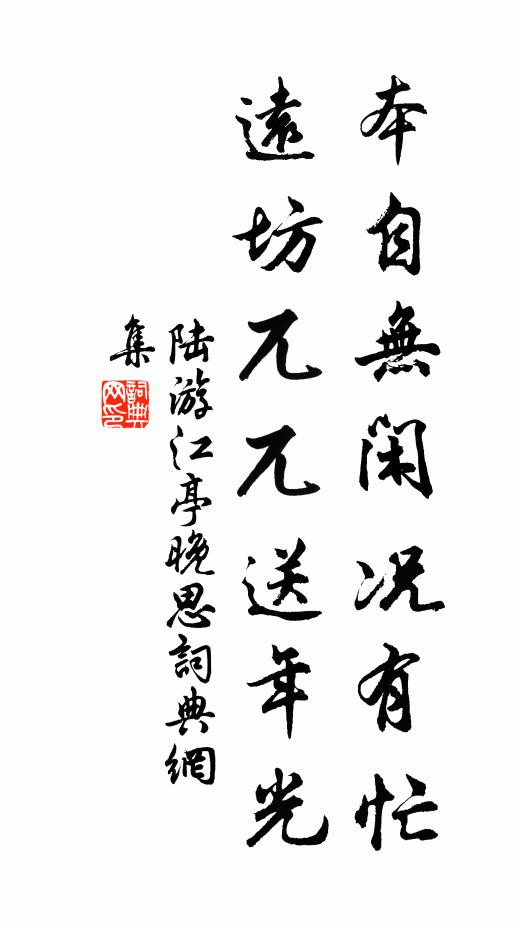 本自無閑况有忙
遠坊兀兀送年光
陆游江亭晚思詞典網
集
詞典
网印